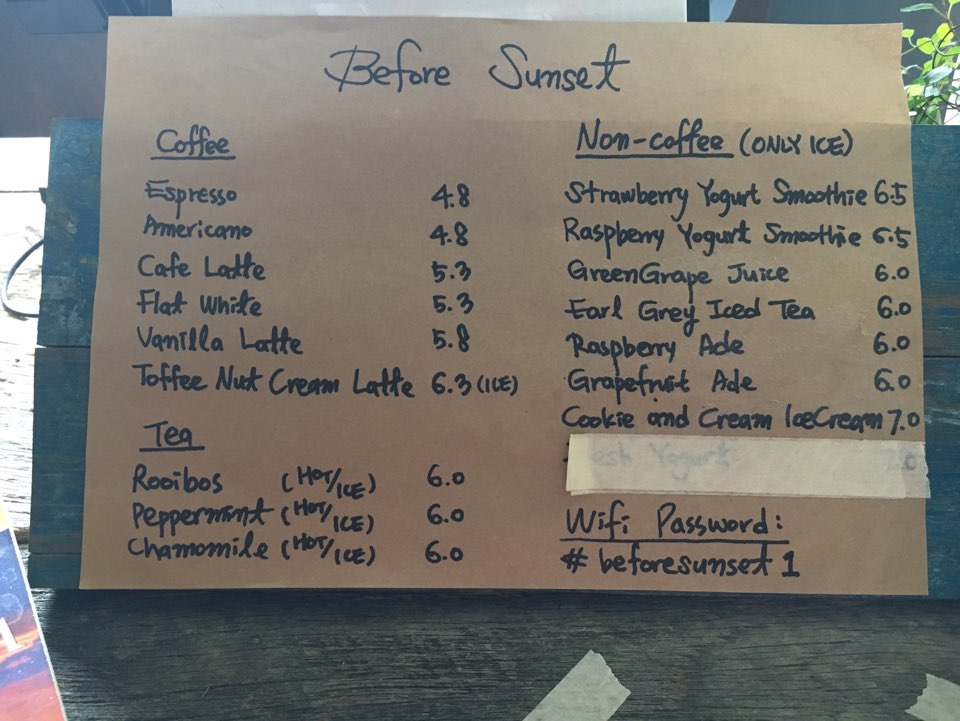 Before Sunset
Coffee
Espresso 4.8
Americano 4.8
Cafe Latte 5.3
Flat White 5.3
Vanilla Latte 5.8
Toffee Nut Cream Latte 6.3 (ICE)
Tea
Rooibos (HOT/ICE) 6.0
Peppermint (HOT/ICE) 6.0
Chamomile (HOT/ICE) 6.0
Non-coffee (ONLY ICE)
Strawberry Yogurt Smoothie 6.5
Raspberry Yogurt Smoothie 6.5
Green Grape Juice 6.0
Earl Grey Iced Tea 6.0
Raspberry Ade 6.0
Grapefruit Ade 6.0
Cookie and Cream IceCream 7.0
Yogurt 7.0
Wifi Password:
# beforesunset 1